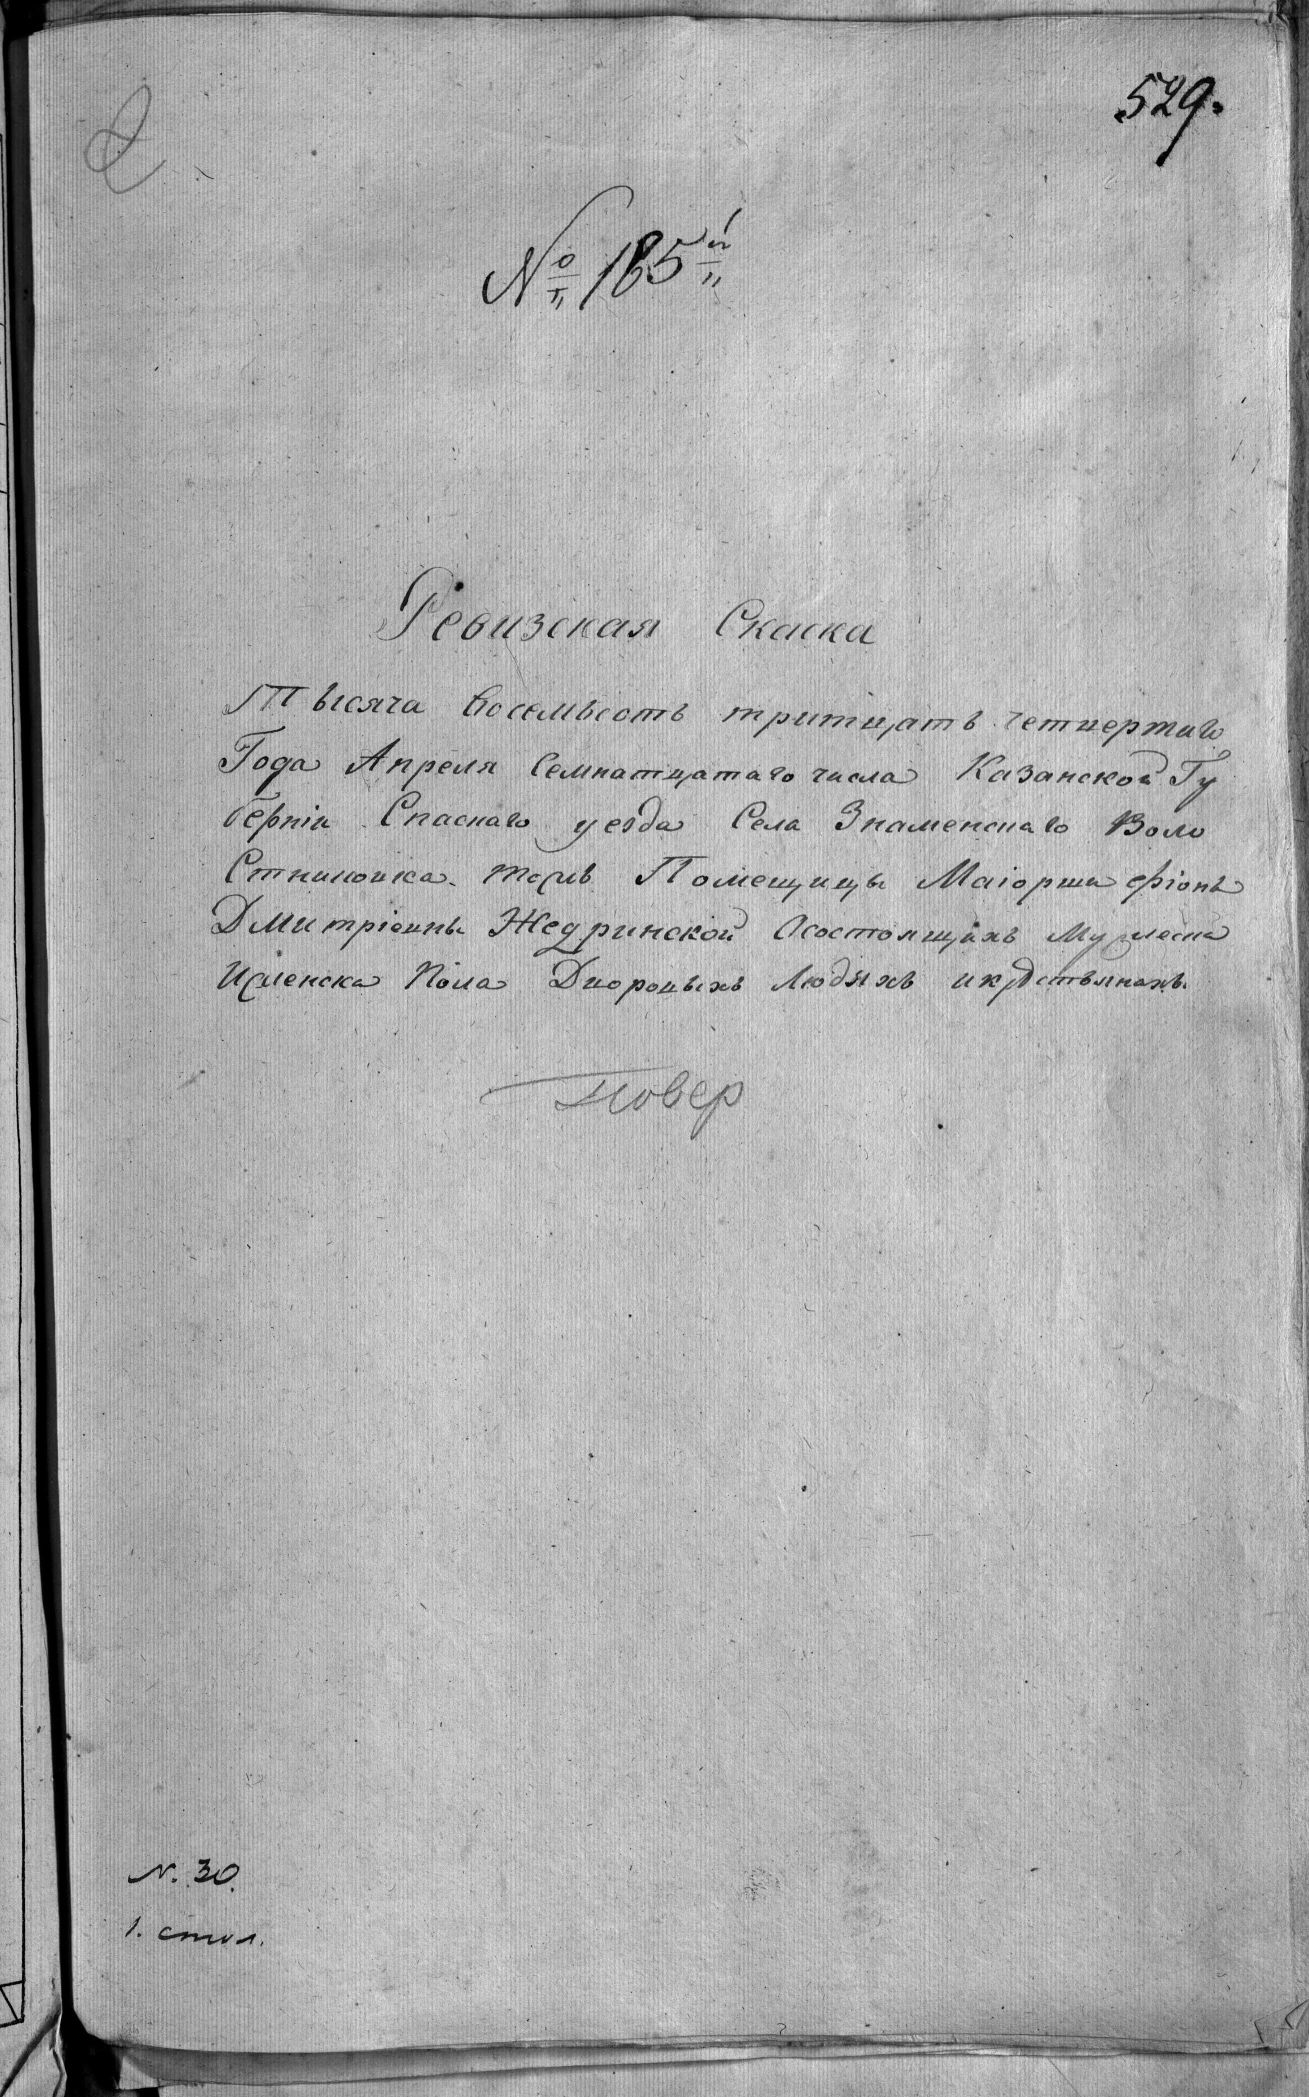 529.
№ 185й
Ревизская Скаска
Тысяча восемьсотъ тритцать четвертаго
Года Апреля Семнатцатаго числа Казанской Гу
берніи Спаскаго уезда Села Знаменскаго Воло
Стниковка тожъ Помещицы Маіорши
Дмитріевны Жедринской Осостоящихъ Мужеска
Иженска Пола Дворовыхъ Людяхъ икрестьянахъ.
Повер
N. 30.
1. стол.